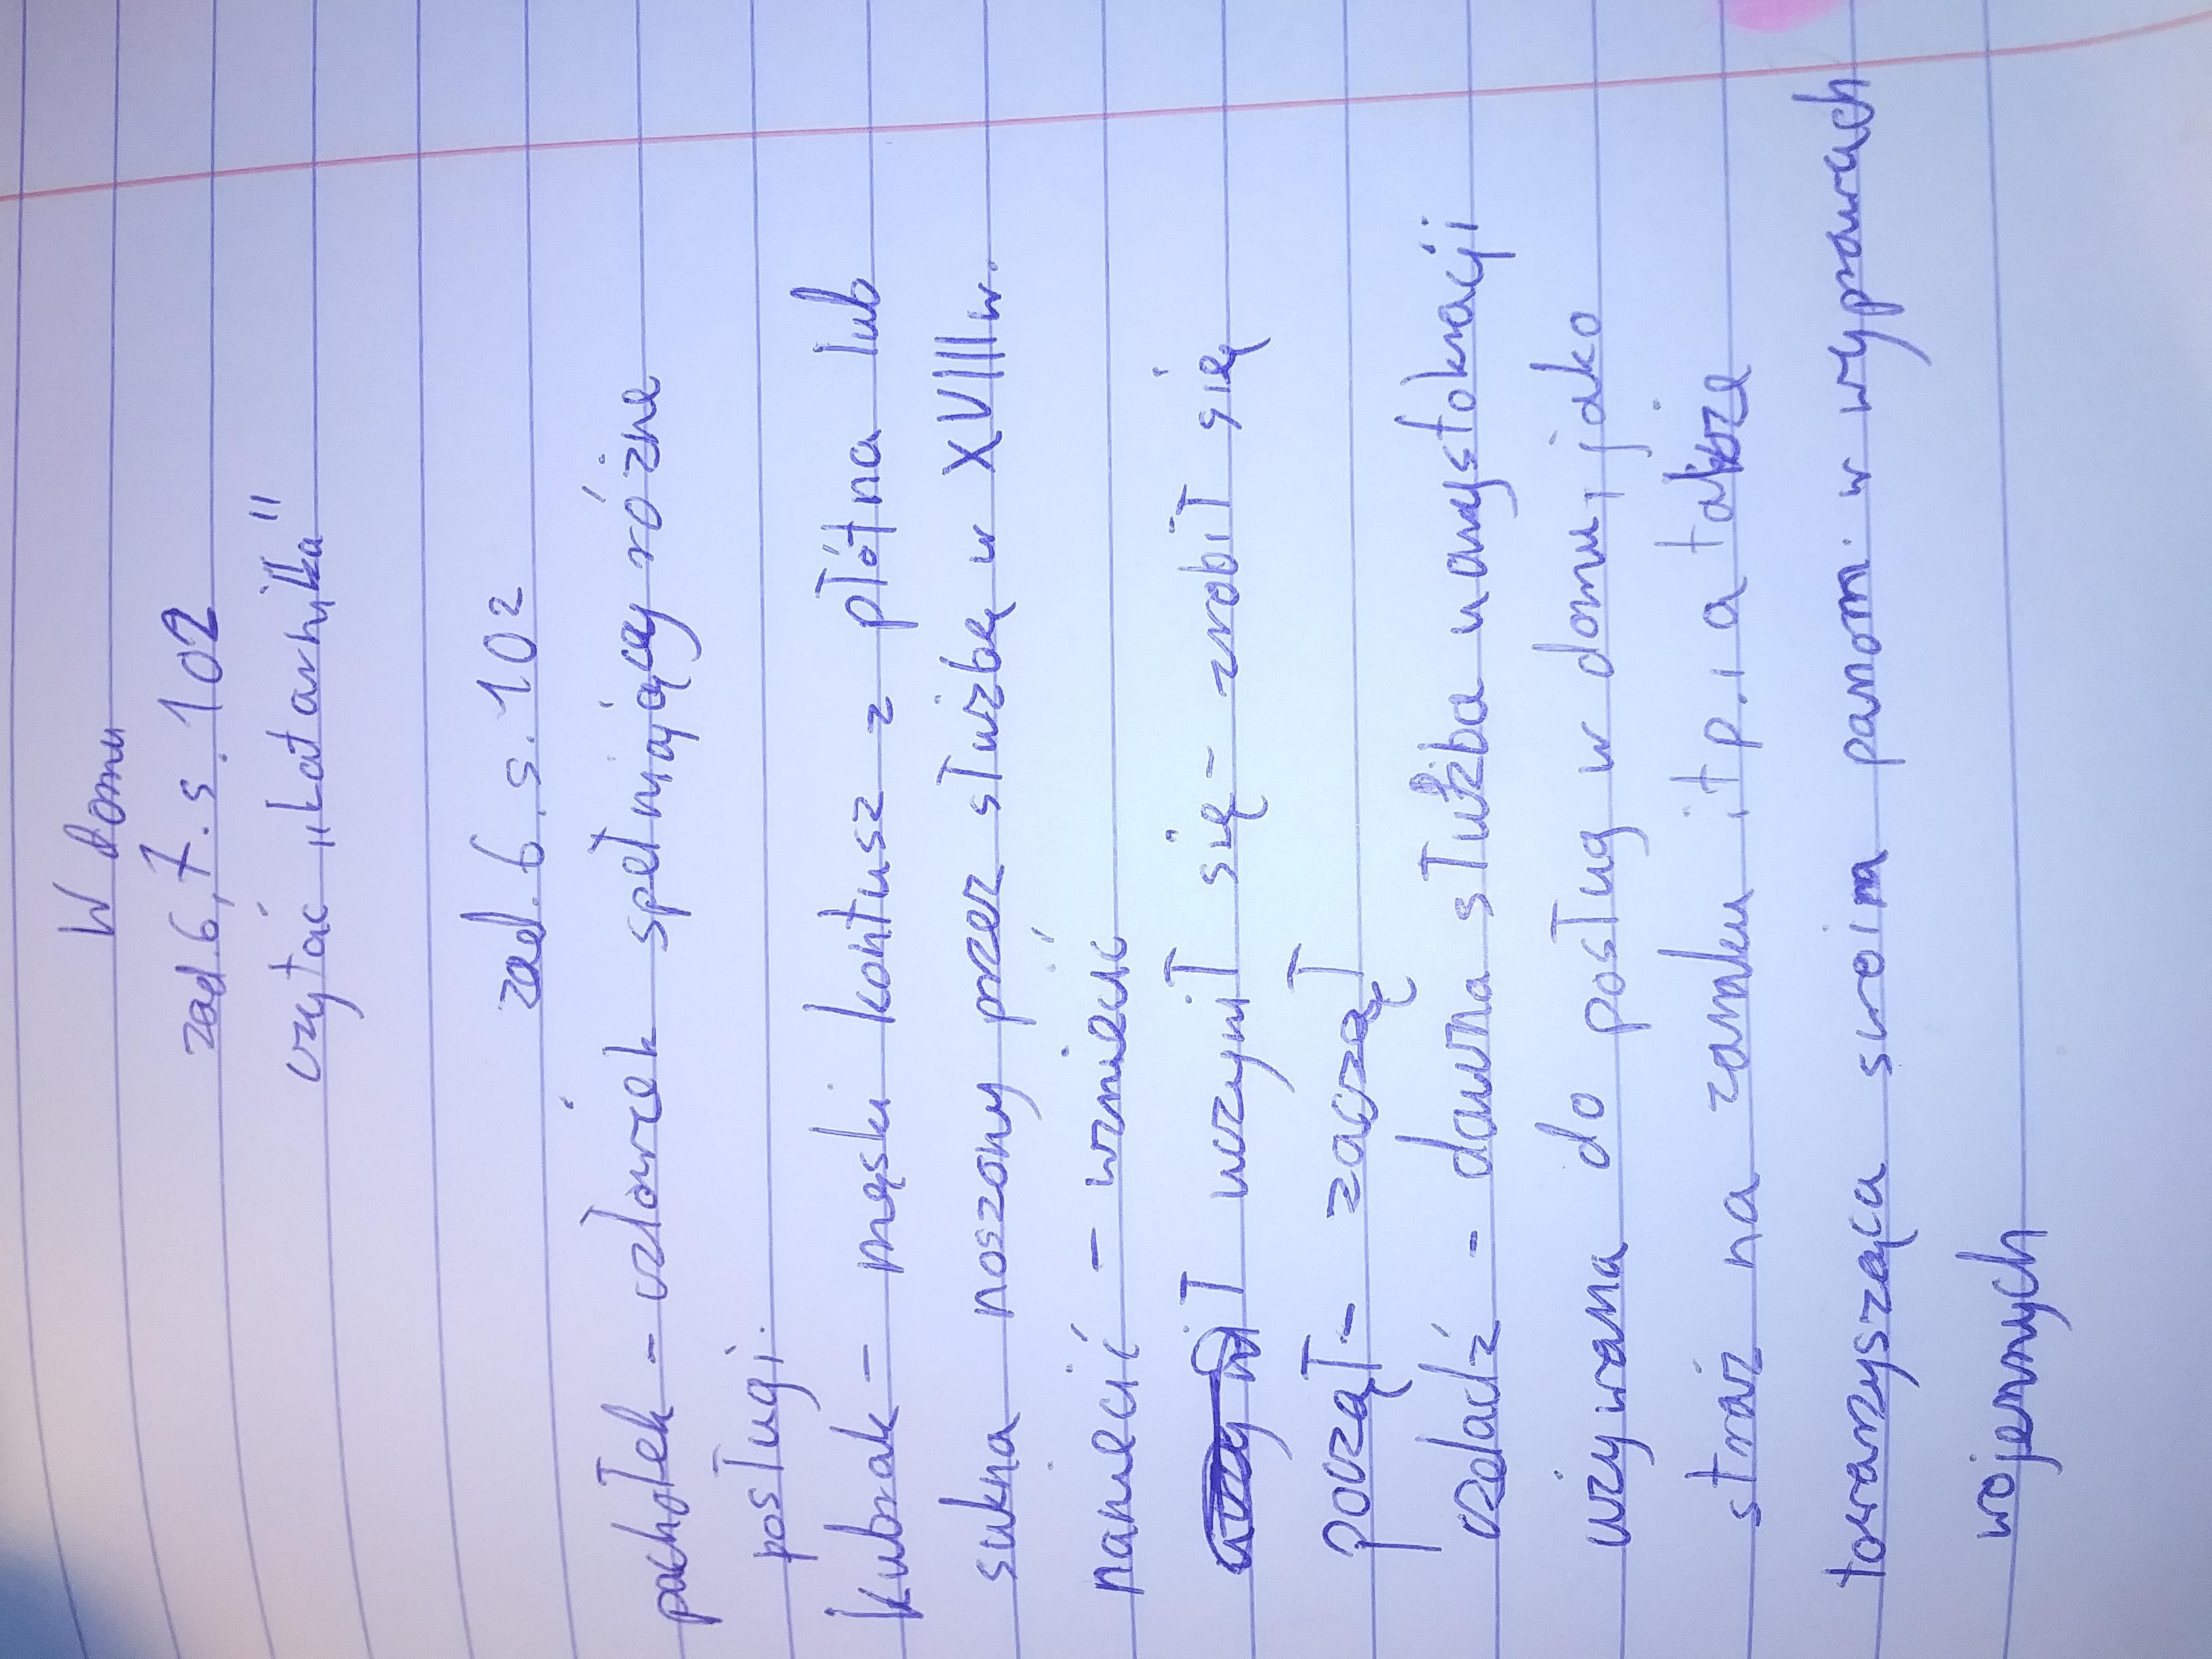 W domu
zad. 6, 7. s. 102
czytać „Latarnika"
zad. 6. s. 102
pachołek – człowiek spełniający różne
posługi.
kubrak – męski kontusz z płótna lub
sukna noszony przez służbę w XVIII w.
naniecić – wzniecić
uczynił się – zrobił się
począł – zaczął
czeladź – dawna służba u arystokracji
używana do posług w domu, jako
straż na zamku itp., a także
towarzysząca swoim panom w wyprawach
wojennych